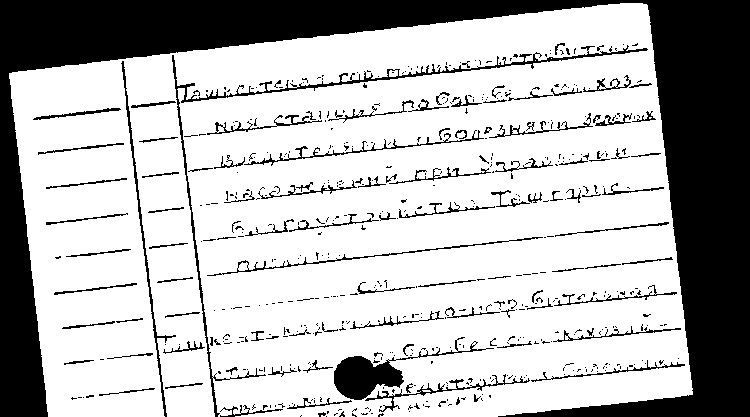 Ташкентская гор. машинно-истребительная
ная станция по борьбе с сельхоз-
вредителями и болезнями зеленых
насаждений при Управлении
благоустройства Ташгорис-
полкома
см.
Ташкентская машинно-истребительная
станция по борьбе с сельскохозяй-
ственными вредителями и болезнями
насаждений.